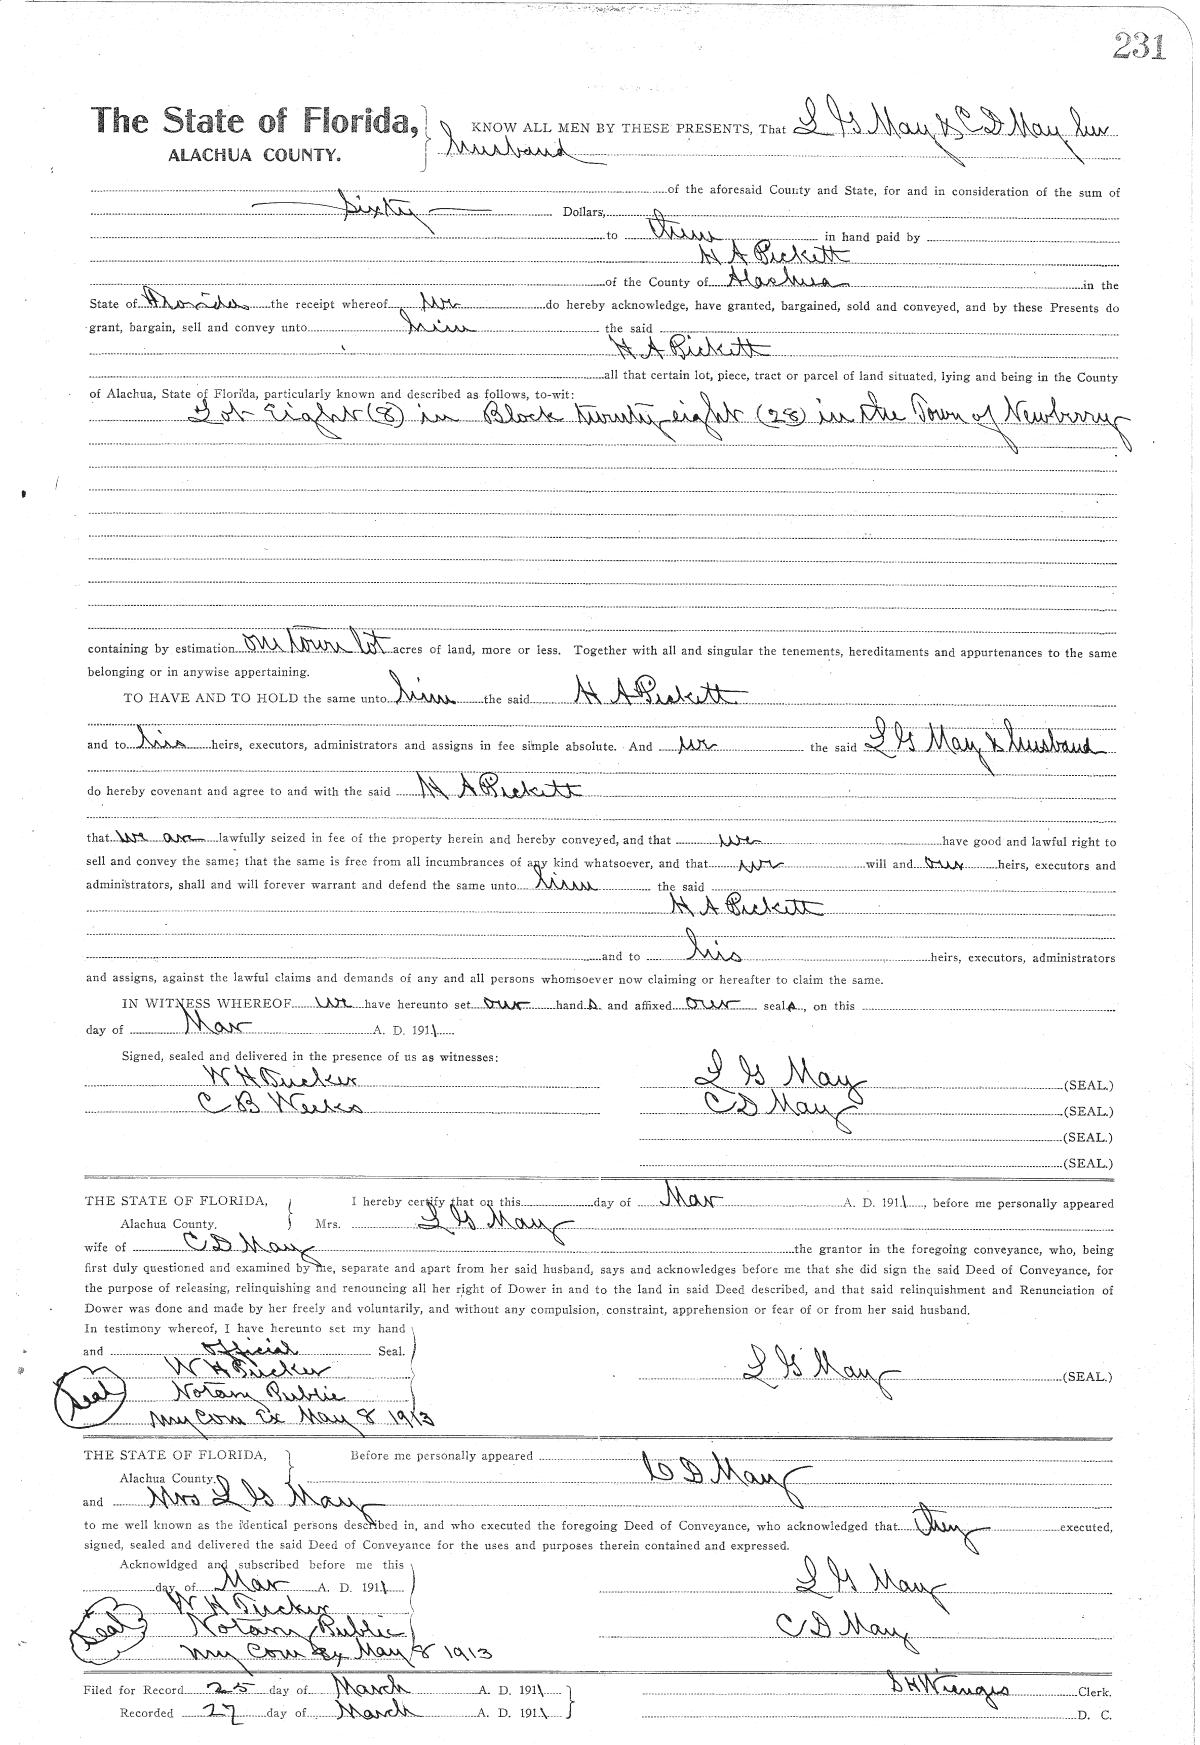 231
The State of Florida, KNOW ALL MEN BY THESE PRESENTS, That L G May & C D May her
ALACHUA COUNTY. husband
of the aforesaid County and State, for and in consideration of the sum of
Sixty Dollars,
to them in hand paid by
H A Pickett
of the County of Alachua in the
State of Florida the receipt whereof we do hereby acknowledge, have granted, bargained, sold and conveyed, and by these Presents do
grant, bargain, sell and convey unto him the said
H A Pickett
all that certain lot, piece, tract or parcel of land situated, lying and being in the County
of Alachua, State of Florida, particularly known and described as follows, to-wit:
Lot Eight (8) in Block twenty eight (28) in the Town of Newberry
containing by estimation one town lot acres of land, more or less. Together with all and singular the tenements, hereditaments and appurtenances to the same
belonging or in anywise appertaining.
TO HAVE AND TO HOLD the same unto him the said H A Pickett
and to his heirs, executors, administrators and assigns in fee simple absolute. And we the said L G May & husband
do hereby covenant and agree to and with the said H A Pickett
that we are lawfully seized in fee of the property herein and hereby conveyed, and that we have good and lawful right to
sell and convey the same; that the same is free from all incumbrances of any kind whatsoever, and that we will and our heirs, executors and
administrators, shall and will forever warrant and defend the same unto him the said
H A Pickett
and to his heirs, executors, administrators
and assigns, against the lawful claims and demands of any and all persons whomsoever now claiming or hereafter to claim the same.
IN WITNESS WHEREOF we have hereunto set our hands and affixed our seals, on this
day of Mar A. D. 1911
Signed, sealed and delivered in the presence of us as witnesses:
W H Tucker L G May (SEAL.)
C B Weeks C D May (SEAL.)
(SEAL.)
(SEAL.)
THE STATE OF FLORIDA, I hereby certify that on this day of Mar A. D. 1911, before me personally appeared
Alachua County. Mrs. L G May
wife of C D May the grantor in the foregoing conveyance, who, being
first duly questioned and examined by me, separate and apart from her said husband, says and acknowledges before me that she did sign the said Deed of Conveyance, for
the purpose of releasing, relinquishing and renouncing all her right of Dower in and to the land in said Deed described, and that said relinquishment and Renunciation of
Dower was done and made by her freely and voluntarily, and without any compulsion, constraint, apprehension or fear of or from her said husband.
In testimony whereof, I have hereunto set my hand
and official Seal.
W H Tucker L G May (SEAL.)
Seal Notary Public
My Com Ex May 8 1913
THE STATE OF FLORIDA, Before me personally appeared
Alachua County. C D May
and Mrs L G May
to me well known as the identical persons described in, and who executed the foregoing Deed of Conveyance, who acknowledged that they executed,
signed, sealed and delivered the said Deed of Conveyance for the uses and purposes therein contained and expressed.
Acknowldged and subscribed before me this
day of Mar A. D. 1911 L G May
W H Tucker
Seal Notary Public C D May
My Com Ex May 8 1913
Filed for Record 25 day of March A. D. 1911 S H Wienges Clerk.
Recorded 27 day of March A. D. 1911 D. C.